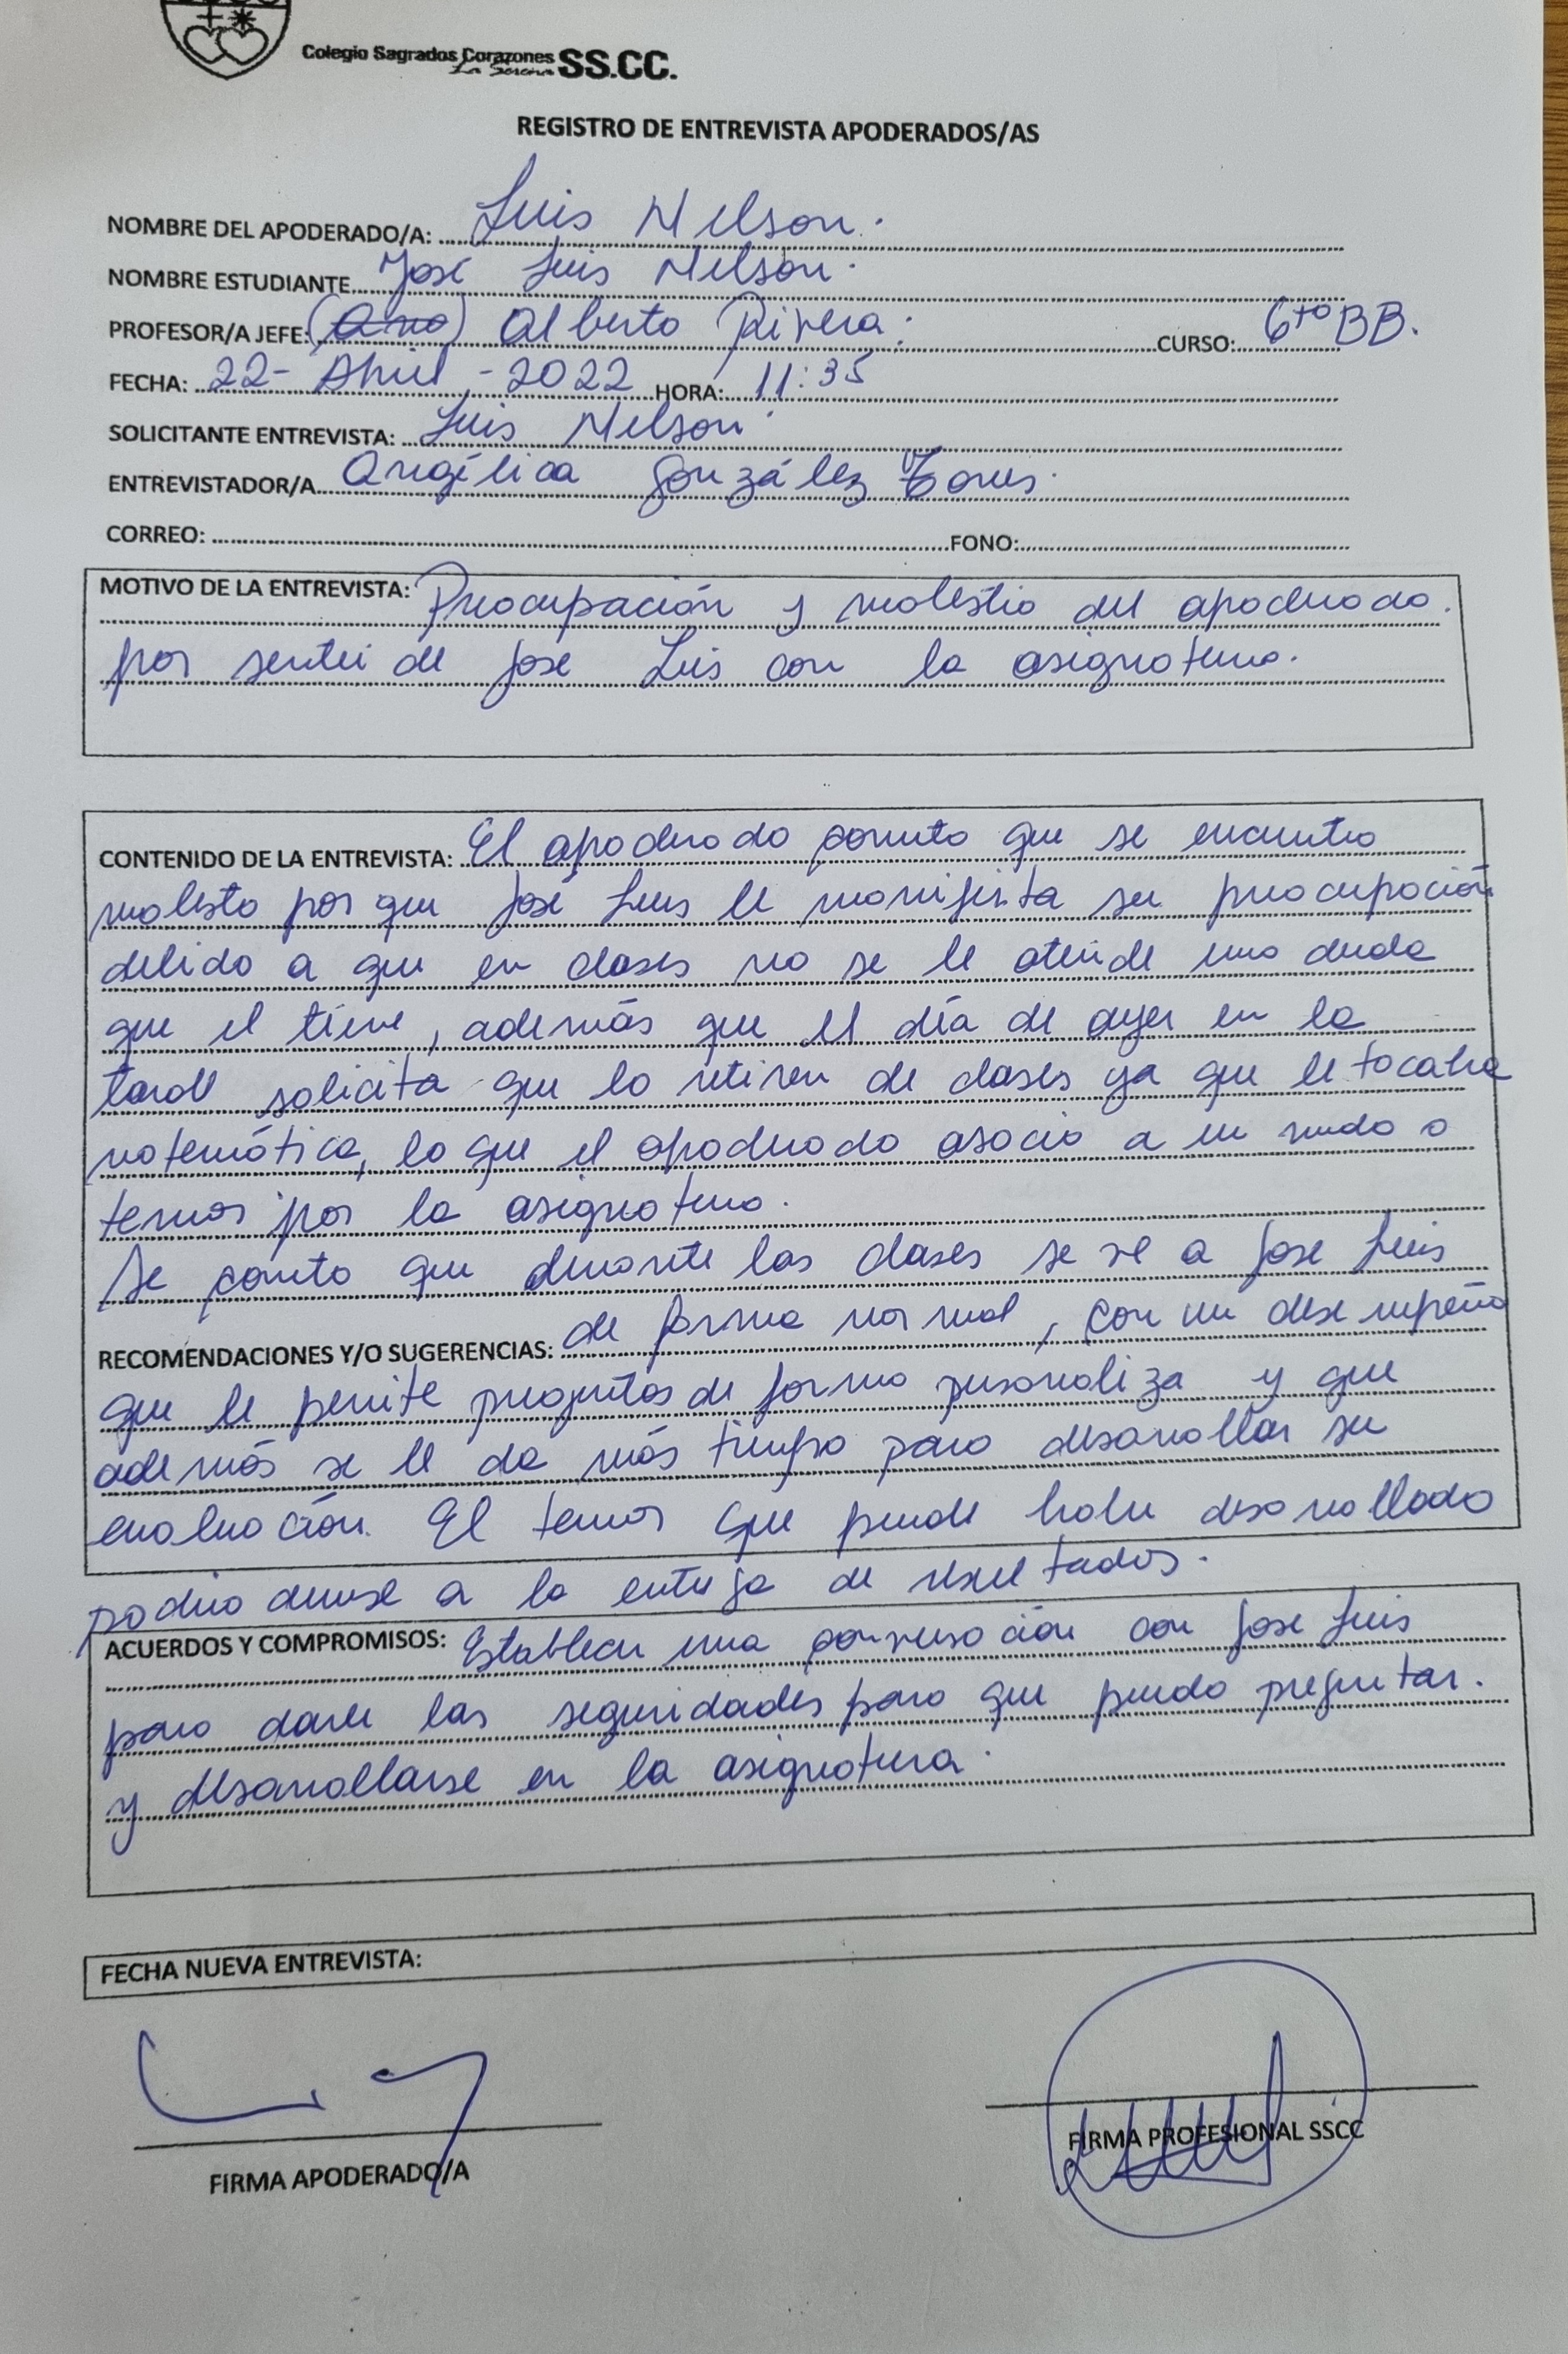 Colegio Sagrados Corazones SS.CC.
La Serena
REGISTRO DE ENTREVISTA APODERADOS/AS
NOMBRE DEL APODERADO/A: Luis Nelson.
NOMBRE ESTUDIANTE José Luis Nelson.
PROFESOR/A JEFE: Alberto Rivera. CURSO: 6to BB.
FECHA: 22- Abril - 2022 HORA: 11:35
SOLICITANTE ENTREVISTA: Luis Nelson
ENTREVISTADOR/A Angélica González Torres.
CORREO: FONO:
MOTIVO DE LA ENTREVISTA: Preocupación y molestia del apoderado.
por sentir de Jose Luis con la asignatura.
CONTENIDO DE LA ENTREVISTA: El apoderado comenta que se encuentra
molesto por que José Luis le manifiesta su preocupación
debido a que en clases no se le atiende una duda
que el tiene, además que el día de ayer en la
tarde solicita que lo retiren de clases ya que le tocaba
matemática, lo que el apoderado asocia a un miedo o
temor por la asignatura.
Se comenta que durante las clases se ve a Jose Luis
RECOMENDACIONES Y/O SUGERENCIAS: de forma normal, con un desempeño
que le permite preguntas de forma personaliza y que
además se le da más tiempo para desarrollar su
evaluación. El temor que puede haber desarrollado
podria deberse a la entrega de resultados.
ACUERDOS Y COMPROMISOS: Establecer una conversación con Jose Luis
para darle las seguridades para que pueda preguntar.
y desarrollarse en la asignatura.
FECHA NUEVA ENTREVISTA:
FIRMA APODERADO/A
FIRMA PROFESIONAL SSCC